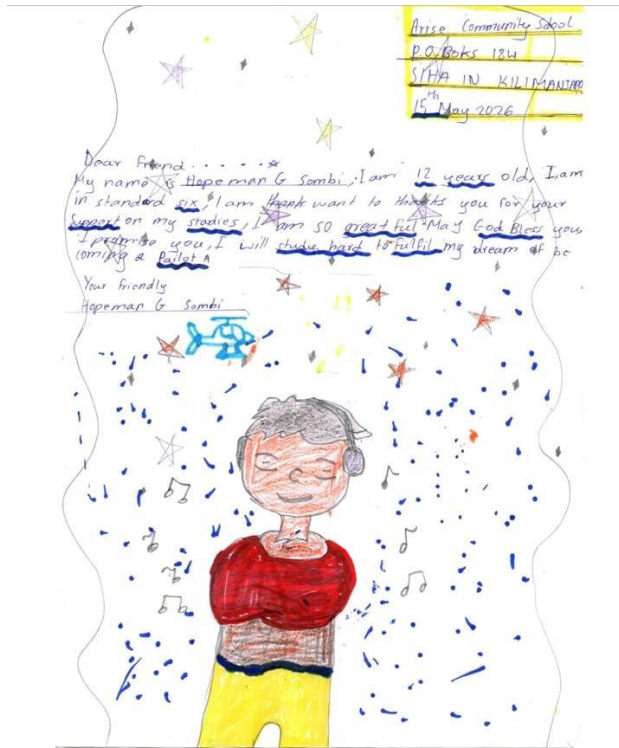 Arise Community School
P.O. Boks 184
SIHA IN KILIMANJARO
15th May 2026
Dear friend . . . . . .
My name is Hopeman G Sombi, I am 12 years old, I am
in standard six, I am want to thanks you for your
Support on my stadies, I am so greatful. May God Bless you
I promise you, I will study hard to fulfil my dream of be
coming a Pailot A
Your friendly
Hopeman G Sombi